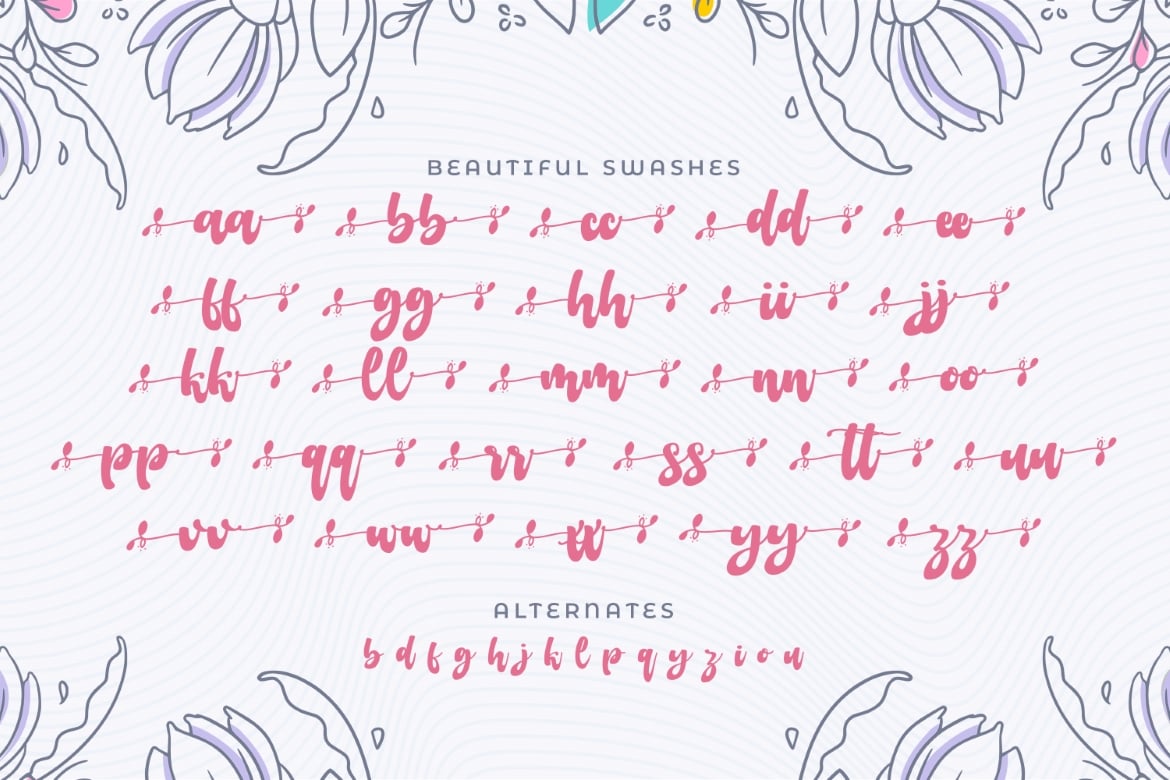 BEAUTIFUL SWASHES
aa bb cc dd ee
ff gg hh ii jj
kk ll mm nn oo
pp qq rr ss tt uu
vv ww xx yy zz
ALTERNATES
b d f g h j k l p q y z i o u